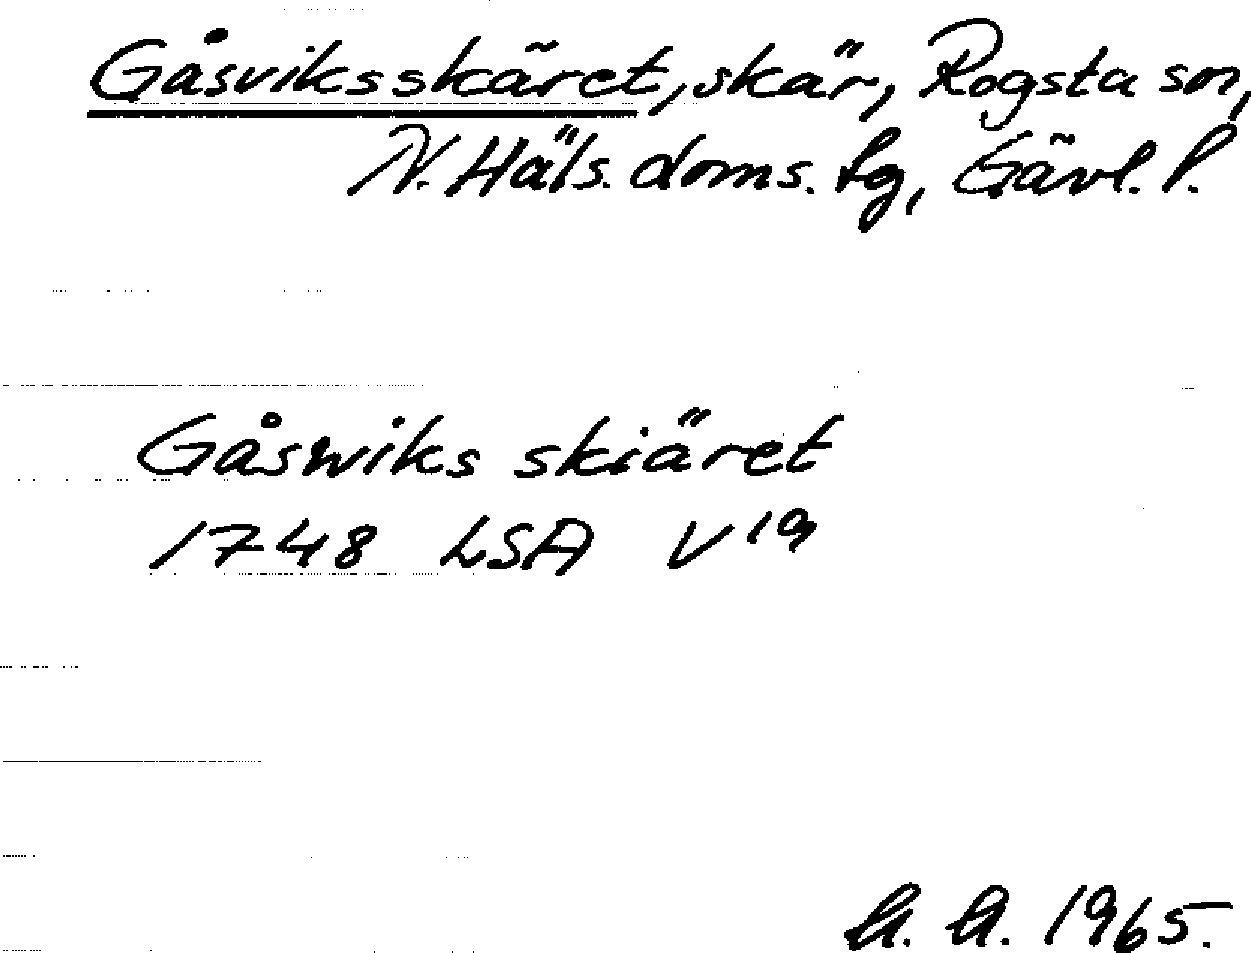 Gåsviksskäret, skär, Rogsta sn,
N. Häls. doms. fg, Gävl. l.
Gåswiks skiäret
1748 LSA V 19
A. A. 1965.